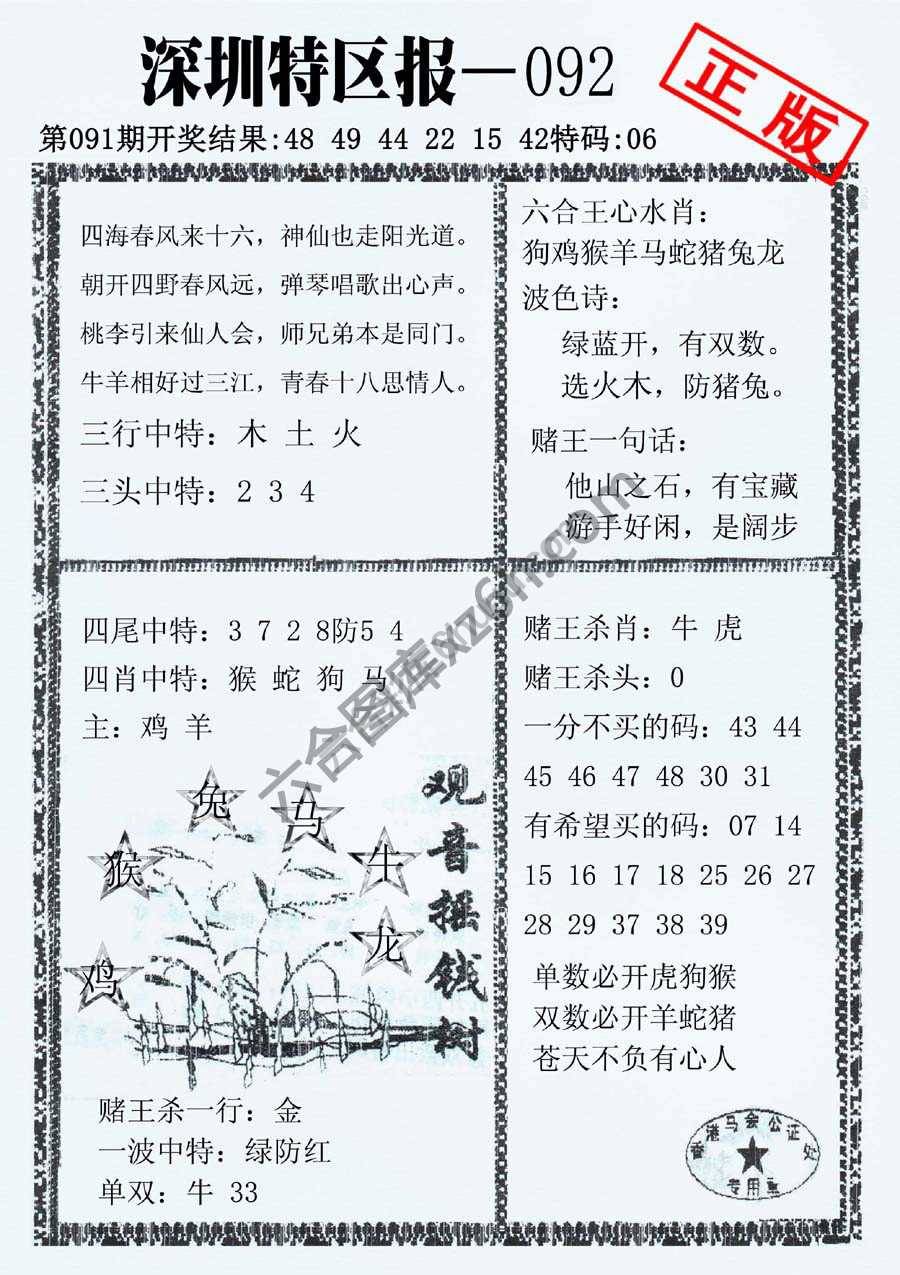 深圳特区报—092
正版
第091期开奖结果:48 49 44 22 15 42特码:06
四海春风来十六，神仙也走阳光道。
朝开四野春风远，弹琴唱歌出心声。
桃李引来仙人会，师兄弟本是同门。
牛羊相好过三江，青春十八思情人。
三行中特：木 土 火
三头中特：2 3 4
六合王心水肖：
狗鸡猴羊马蛇猪兔龙
波色诗：
绿蓝开，有双数。
选火木，防猪兔。
赌王一句话：
他山之石，有宝藏
游手好闲，是阔步
四尾中特：3 7 2 8防5 4
四肖中特：猴 蛇 狗 马
主：鸡 羊
兔
马
猴
牛
龙
鸡
观音摇钱树
赌王杀一行：金
一波中特：绿防红
单双：牛 33
赌王杀肖：牛 虎
赌王杀头：0
一分不买的码：43 44
45 46 47 48 30 31
有希望买的码：07 14
15 16 17 18 25 26 27
28 29 37 38 39
单数必开虎狗猴
双数必开羊蛇猪
苍天不负有心人
香港马会公证处
专用章
六合图库xz6m.com